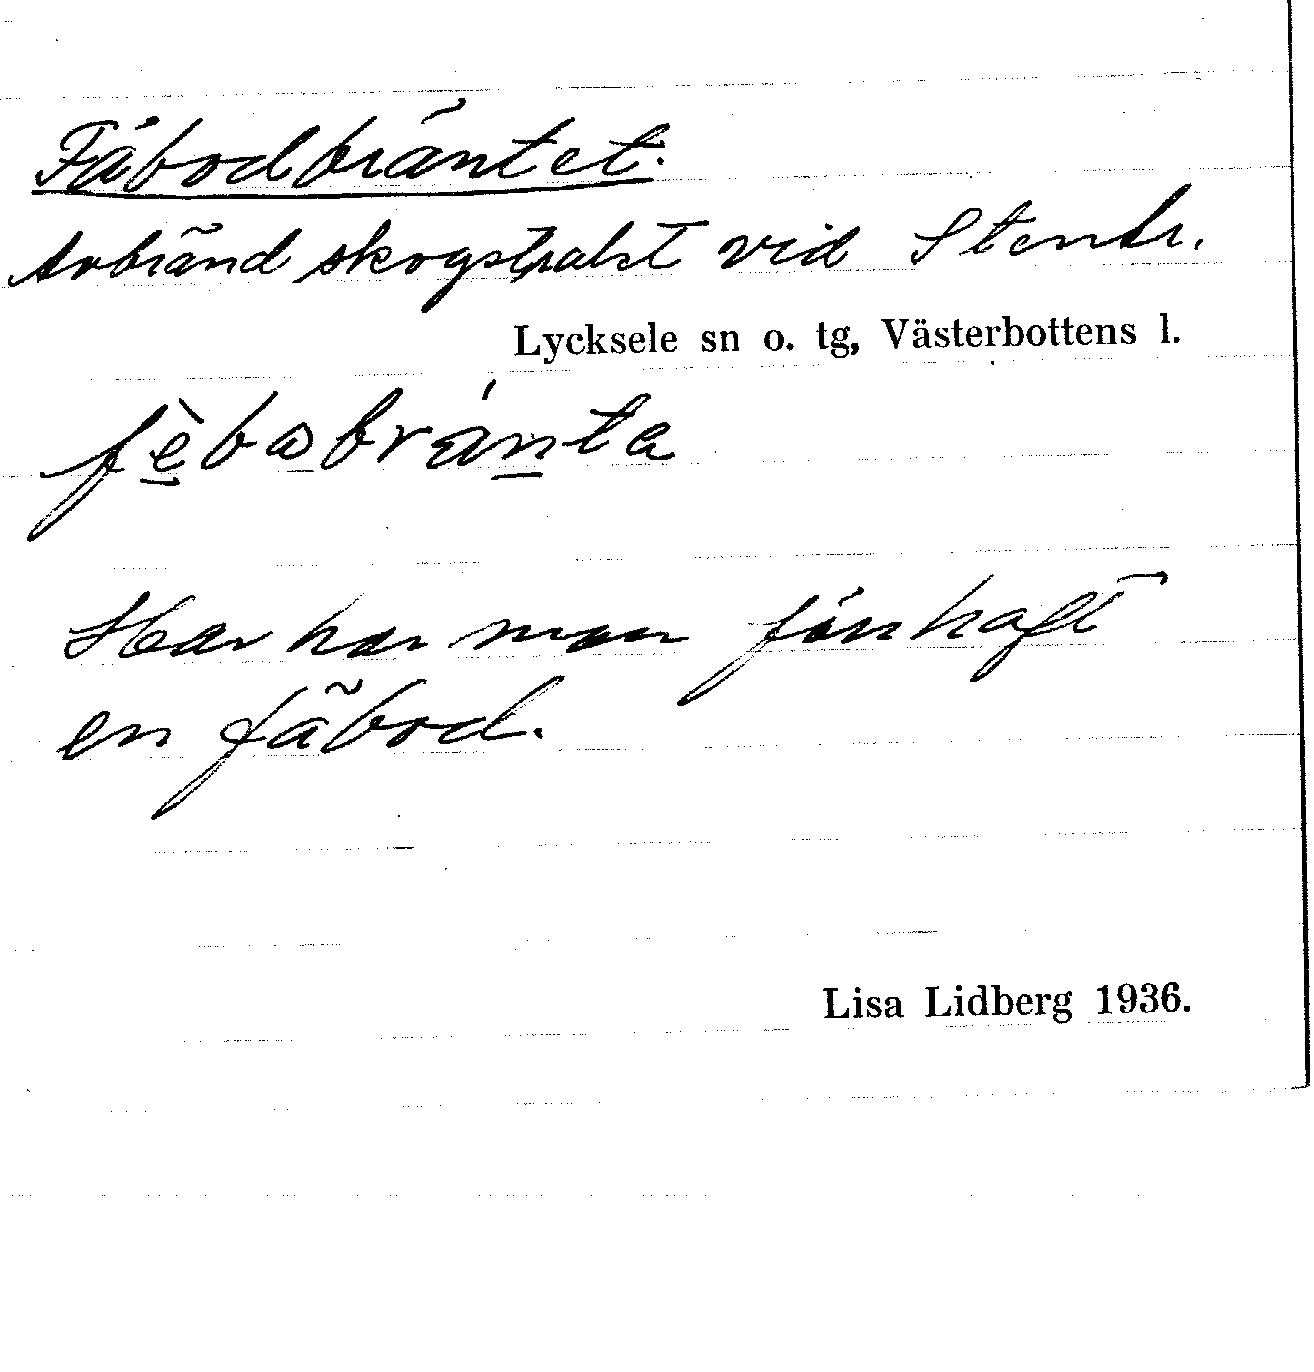 Fäbodbräntet.
Avbränd skogstrakt vid Stentr.
Lycksele sn o. tg, Västerbottens l.
Här har man förr haft
en fäbod.
Lisa Lidberg 1936.